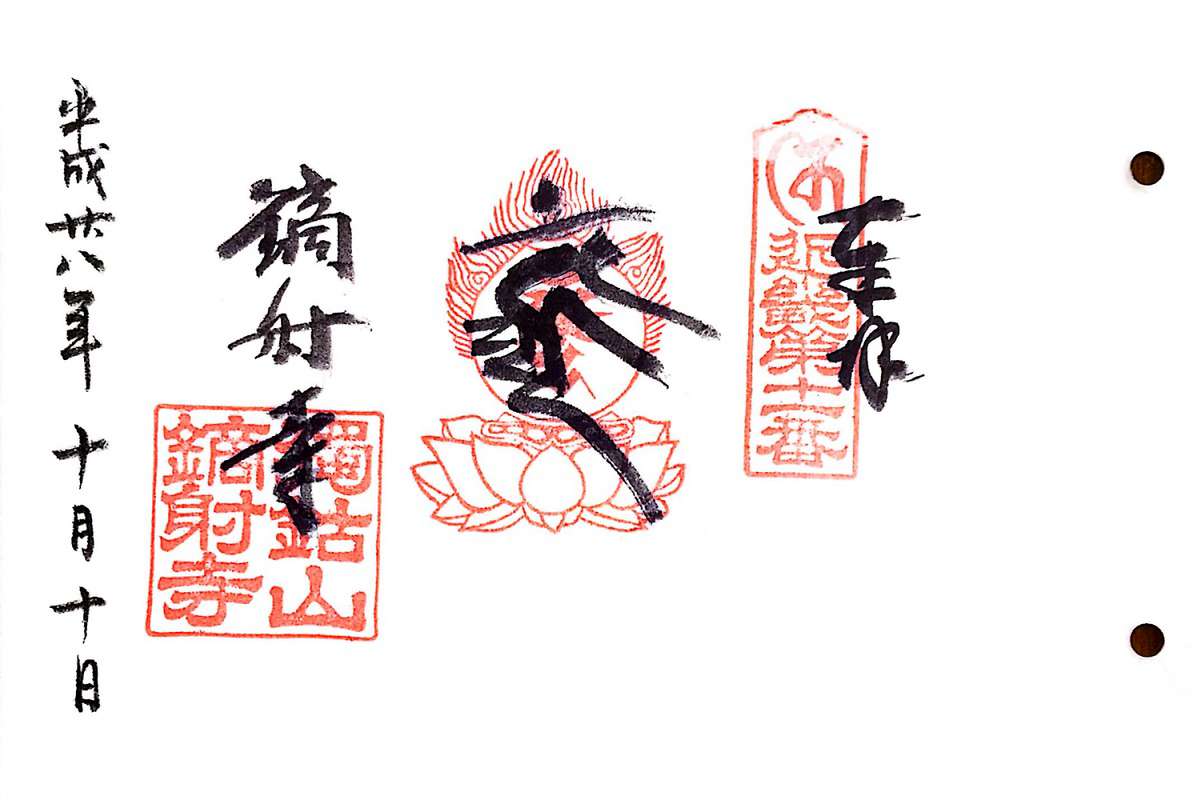 奉拝
近畿第十一番
鏑射寺
鐲鈷山
鏑射寺
平成廿八年十月十日